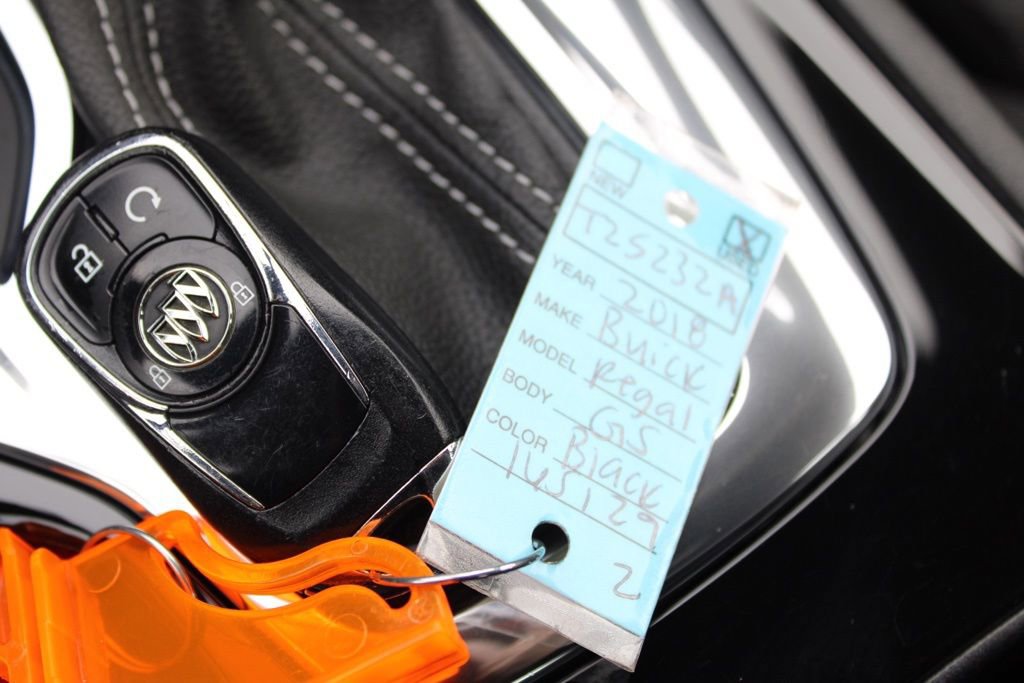 NEW
USED
T25232A
YEAR 2018
MAKE Buick
MODEL Regal
BODY GS
COLOR Black
145129
2